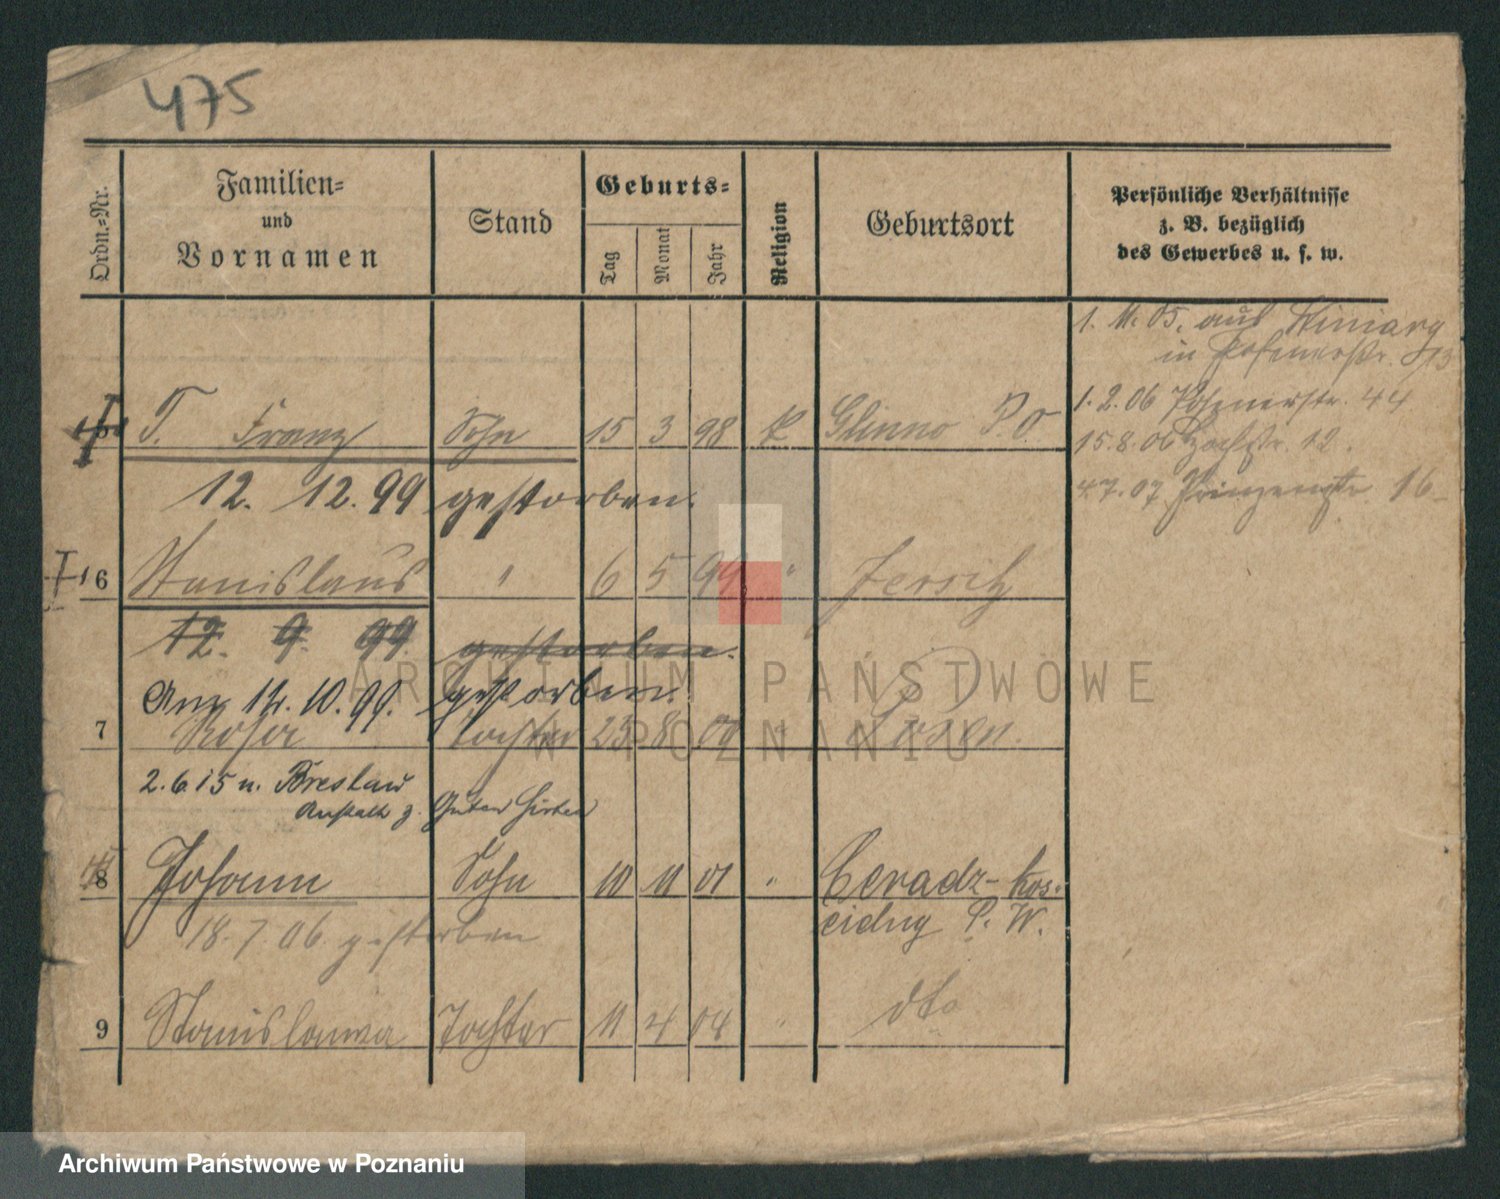 475
Ordn.-Nr.
Familien-
und
Vornamen
Stand
Geburts-
Tag
Monat
Jahr
Religion
Geburtsort
Persönliche Verhältnisse
z. B. bezüglich
des Gewerbes u. s. w.
1. 11. 05. aus Winiary
in Posenerstr.
1. 2. 06 Posenerstr. 44
15. 8. 06 12.
4.7.07 Prinzenstr. 16
5 T. Franz Sohn 15 3 98 K Glinno P.O.
12. 12. 99 gestorben.
6 Stanislaus " 6 5 99 " Jersitz
12. 9. 99. gestorben.
Anz. 10. 99. gestorben.
7 Rosa Tochter 23 8 00 " Posen.
2. 6. 15 n. Breslau
Anstalt z. Guten Hirten
8 Johann Sohn 10 11 01 " Ceradz- kos-
cielny P. W.
18. 7. 06. gestorben
9 Stanislawa Tochter 11 4 04 " dto
ARCHIWUM PAŃSTWOWE
W POZNANIU
Archiwum Państwowe w Poznaniu